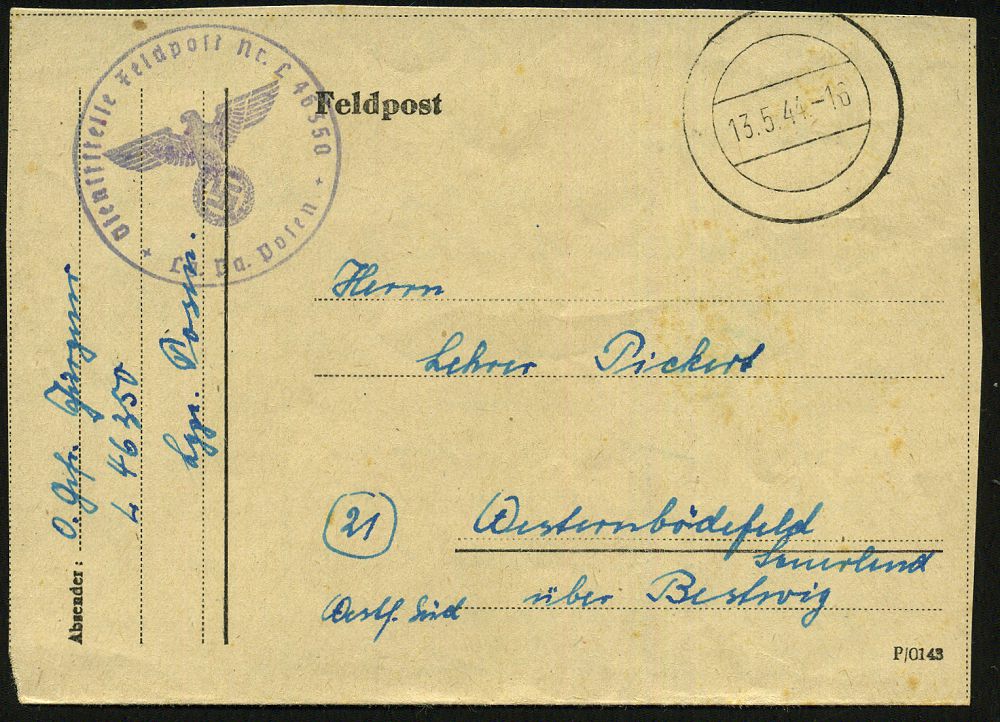 Dienststelle Feldpost Nr. L 46350
Lg. Pa. Posen
Feldpost
13.5.44-16
Herrn
Lehrer Pickert
21
Westernbödefeld
Sauerland
Westf. Süd
über Bestwig
P/0143
Absender:
O. Gefr.
L 46350
Lgpa. Posen.